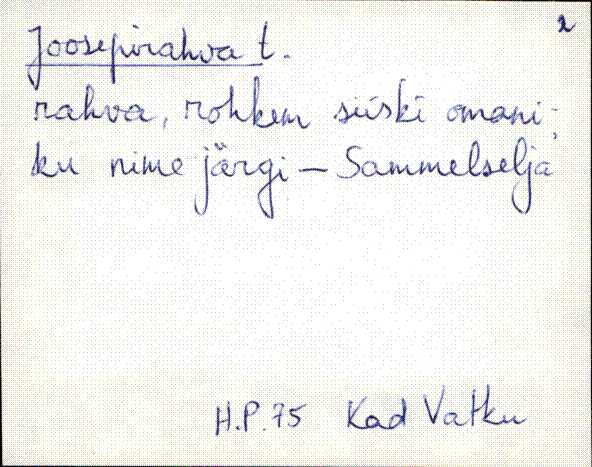 2
Joosepirahva t.
rahva, rohkem siiski omani-
ku nime järgi – Sammelselja
H.P.75 Kad Vatku